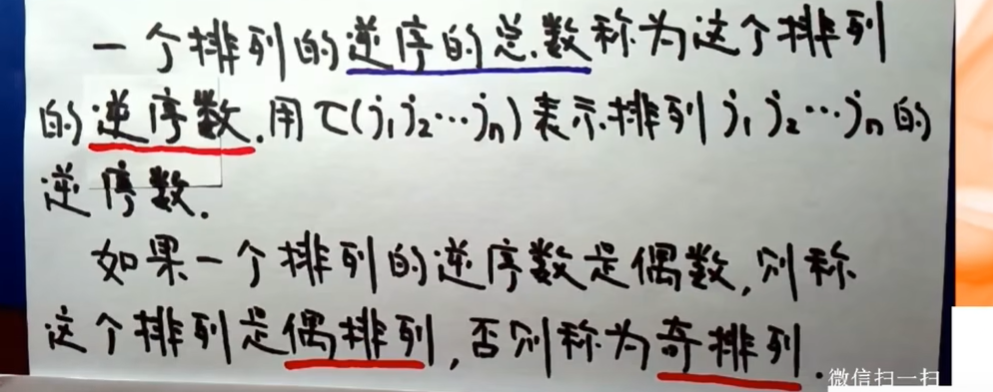 一个排列的逆序的总数称为这个排列
的逆序数.用τ(j₁j₂…jₙ)表示排列j₁j₂…jₙ的
逆序数.
如果一个排列的逆序数是偶数,则称
这个排列是偶排列,否则称为奇排列.
微信扫一扫